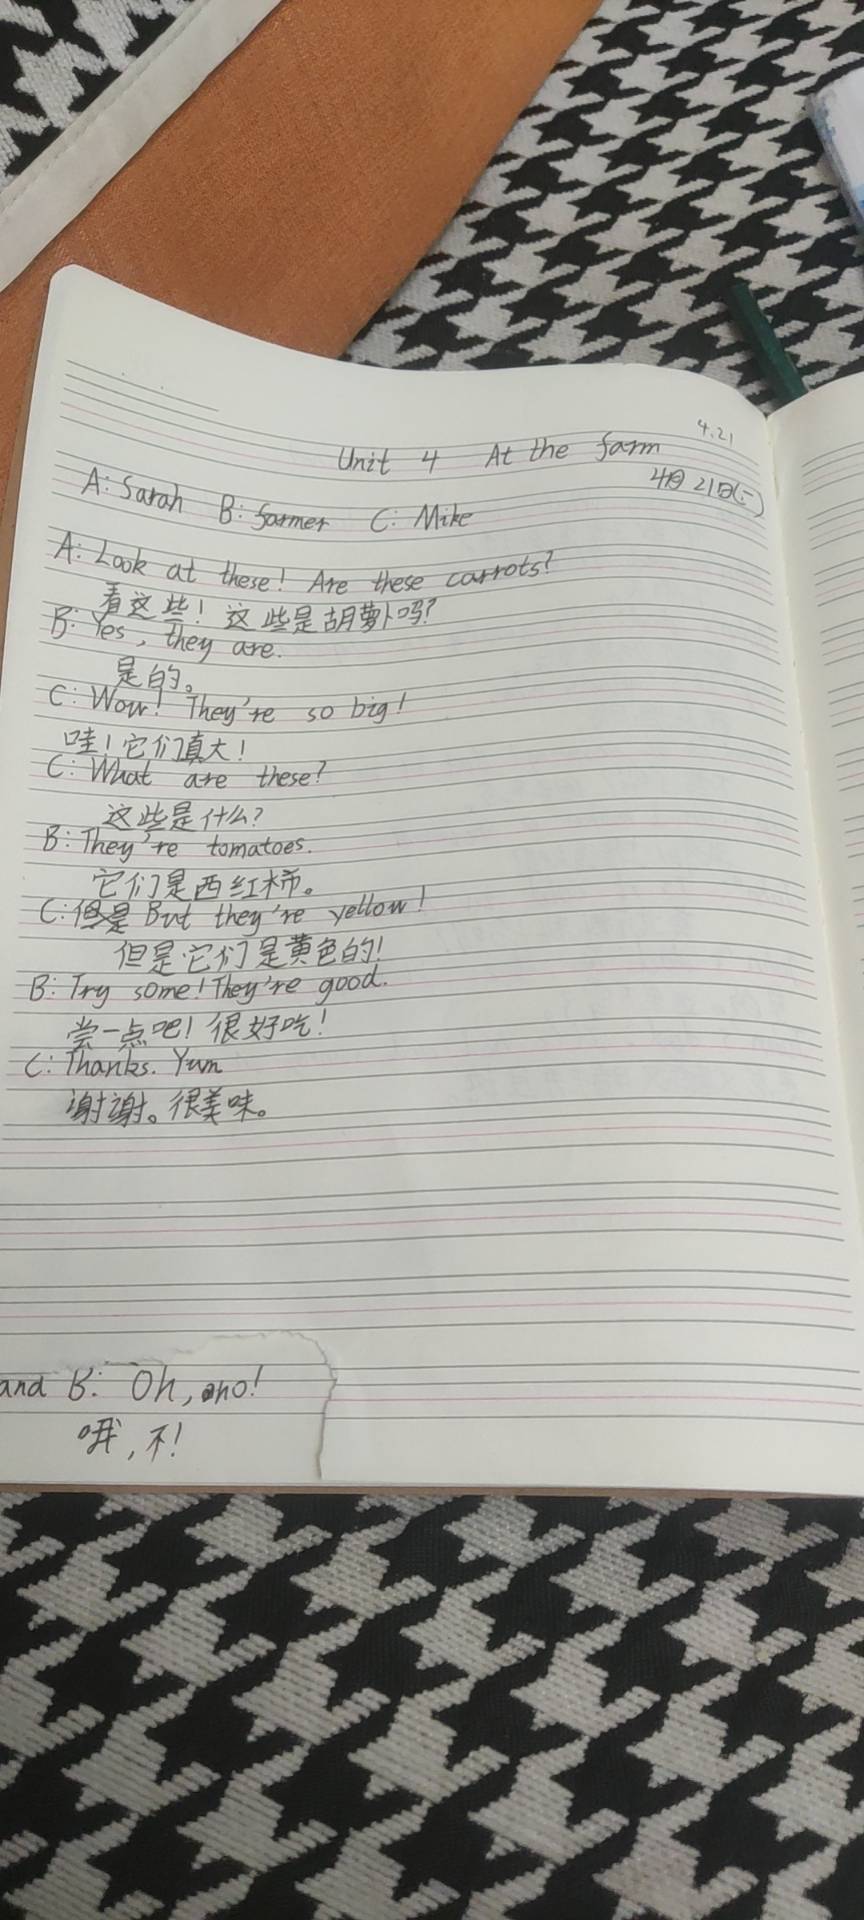 4.21
Unit 4 At the farm
4月21日(二)
A: Sarah B: farmer C: Mike
A: Look at these! Are these carrots?
看这些！这些是胡萝卜吗？
B: Yes, they are.
是的。
C: Wow! They're so big!
哇！它们真大！
C: What are these?
这些是什么？
B: They're tomatoes.
它们是西红柿。
C: But they're yellow!
但是它们是黄色的！
B: Try some! They're good.
尝一点吧！很好吃！
C: Thanks. Yum
谢谢。很美味。
and B: Oh, no!
哦，不！